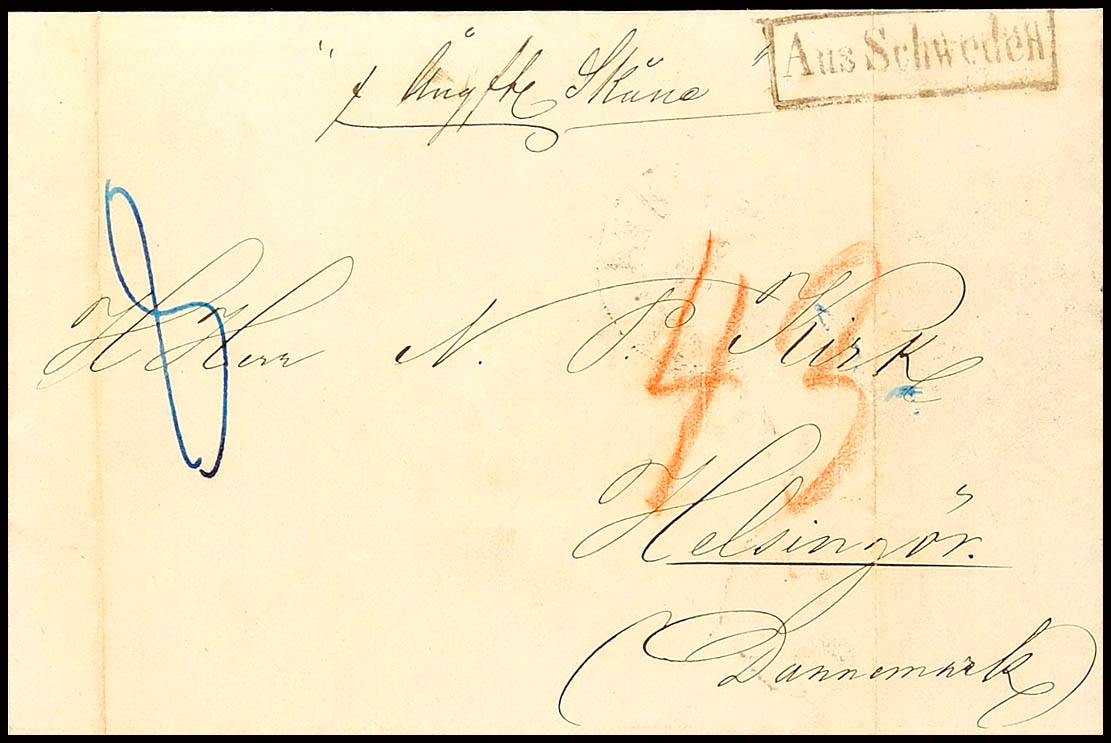 " p Ångfte Skåne "
Aus Schweden
HHerr N. P. Kirk
43
Helsingör.
(Dannemark)